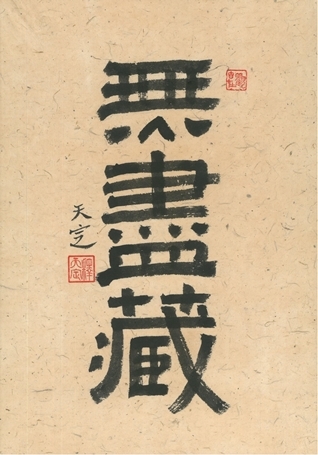 無盡藏
天定